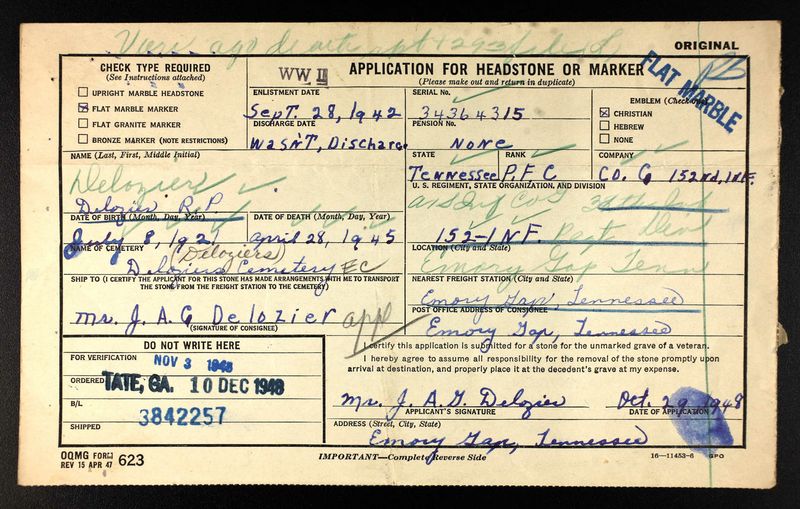 ORIGINAL
CHECK TYPE REQUIRED
(See Instructions attached)
UPRIGHT MARBLE HEADSTONE
FLAT MARBLE MARKER
FLAT GRANITE MARKER
BRONZE MARKER (NOTE RESTRICTIONS)
WW II
APPLICATION FOR HEADSTONE OR MARKER
(Please make out and return in duplicate)
FLAT MARBLE
ENLISTMENT DATE
Sept. 28, 1942
DISCHARGE DATE
Wasn't, Discharge
SERIAL No.
34364315
PENSION No.
None
EMBLEM (Check one)
CHRISTIAN
HEBREW
NONE
NAME (Last, First, Middle Initial)
Delozier
Delozier R.P.
STATE
Tennessee
RANK
P.F.C
COMPANY
CO. G 152nd, INF.
U. S. REGIMENT, STATE ORGANIZATION, AND DIVISION
152-INF.
DATE OF BIRTH (Month, Day, Year)
July 8, 192
DATE OF DEATH (Month, Day, Year)
April 28, 1945
NAME OF CEMETERY
(Deloziers)
Deloziers Cemetery EC
LOCATION (City and State)
Emory Gap Tenn
SHIP TO (I CERTIFY THE APPLICANT FOR THIS STONE HAS MADE ARRANGEMENTS WITH ME TO TRANSPORT THE STONE FROM THE FREIGHT STATION TO THE CEMETERY)
NEAREST FREIGHT STATION (City and State)
Emory Gap, Tennessee
mr. J. A. G Delozier
(SIGNATURE OF CONSIGNEE)
appl
POST OFFICE ADDRESS OF CONSIGNEE
Emory Gap, Tennessee
DO NOT WRITE HERE
FOR VERIFICATION
NOV 3 1948
ORDERED
TATE, GA. 10 DEC 1948
B/L
3842257
SHIPPED
I certify this application is submitted for a stone for the unmarked grave of a veteran.
I hereby agree to assume all responsibility for the removal of the stone promptly upon
arrival at destination, and properly place it at the decedent's grave at my expense.
Mr. J. A. G. Delozier
Oct. 29, 1948
APPLICANT'S SIGNATURE
DATE OF APPLICATION
ADDRESS (Street, City, State)
Emory Gap, Tennessee
OQMG FORM
REV 15 APR 47 623
IMPORTANT—Complete Reverse Side
16—11453-6 GPO